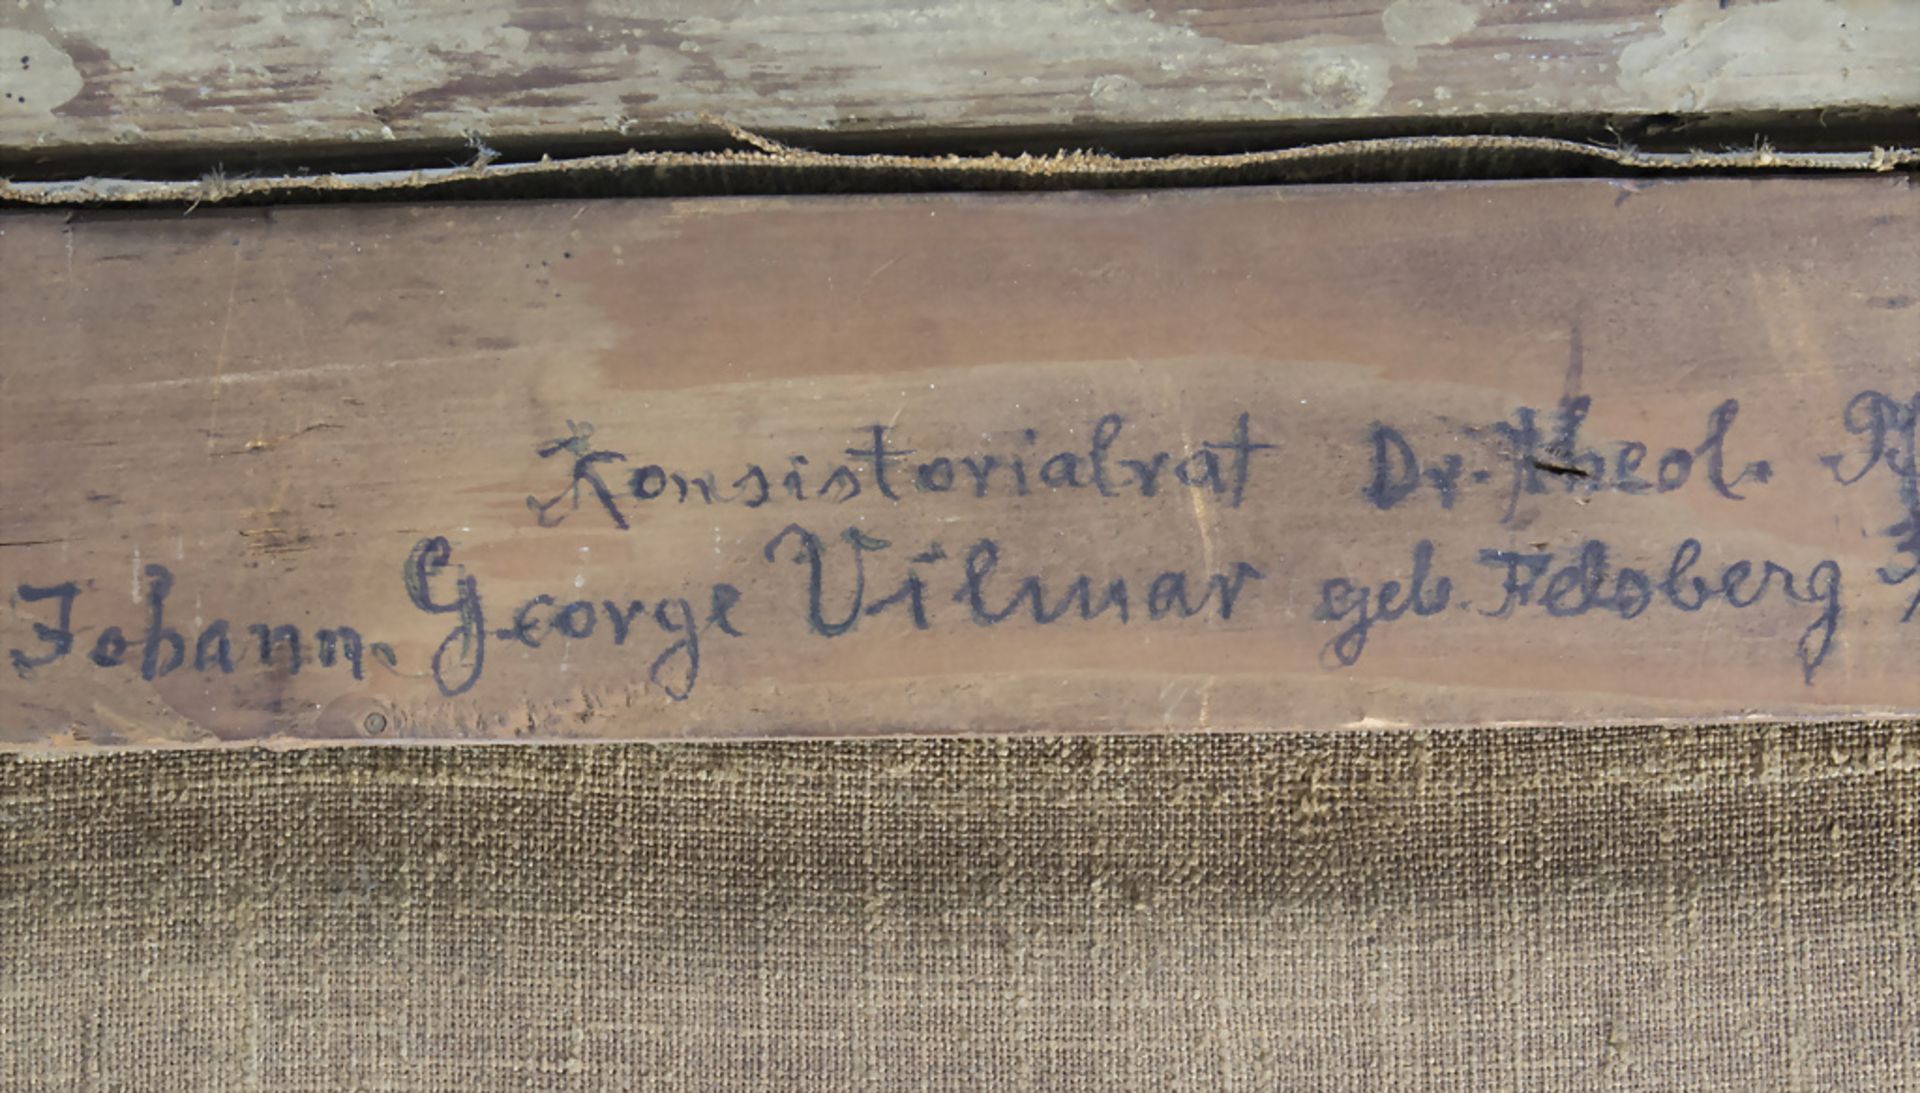 Konsistorialrat Dr. theol.
Johann. George Vilmar geb. Felsberg